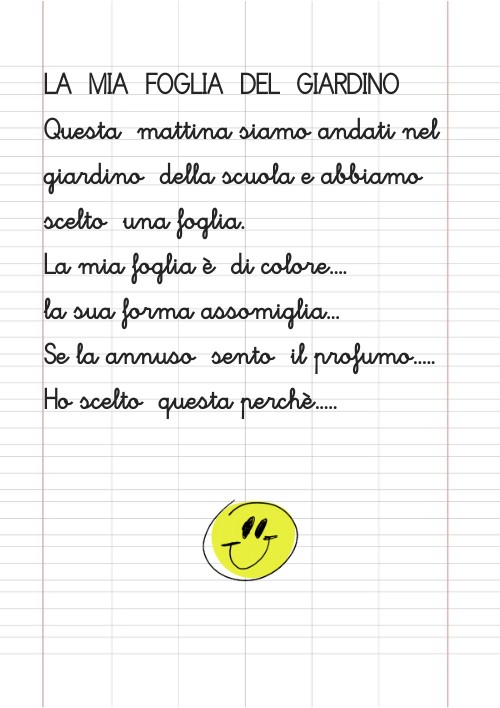 LA MIA FOGLIA DEL GIARDINO
Questa mattina siamo andati nel
giardino della scuola e abbiamo
scelto una foglia.
La mia foglia è di colore....
la sua forma assomiglia...
Se la annuso sento il profumo.....
Ho scelto questa perchè.....